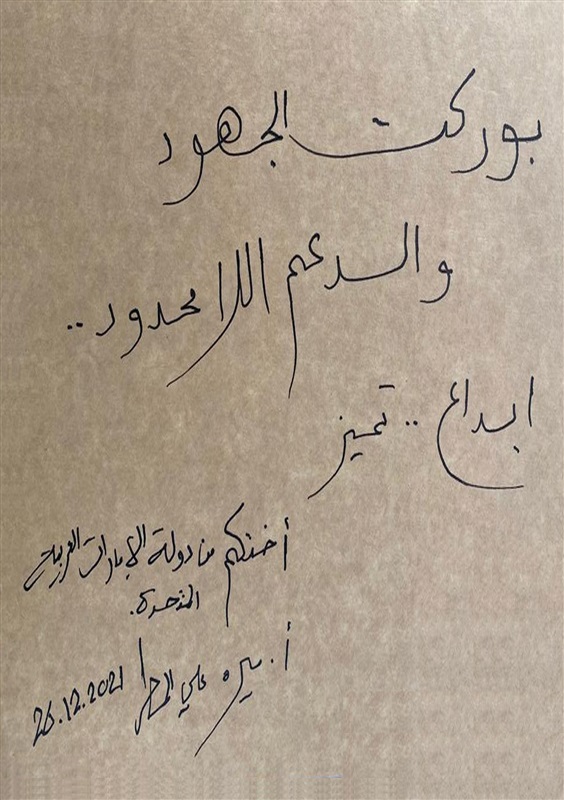 بوركت الجهود
والدعم اللامحدود..
ابداع .. تميز
أختكم من دولة الإمارات العربية
المتحدة.
أ. علي 26.12.2021